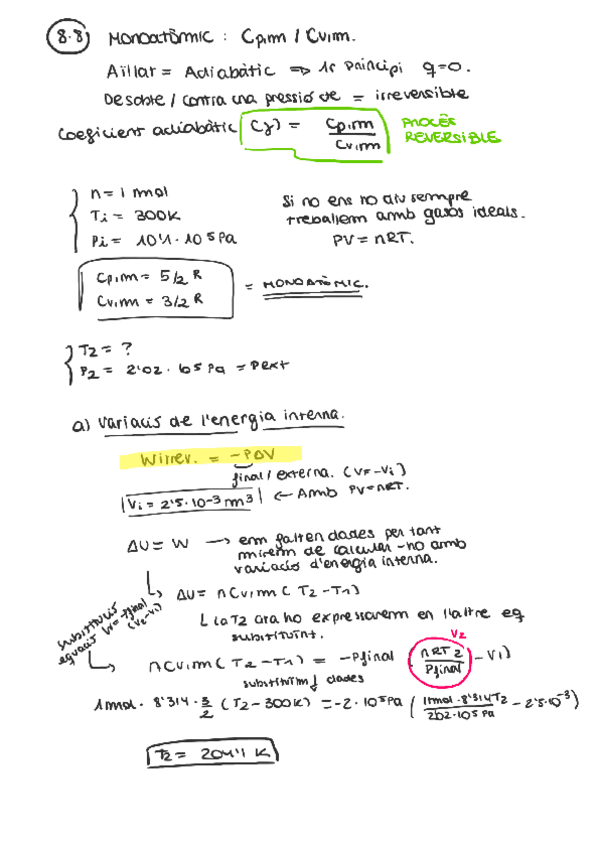 8.8 Monoatòmic : Cp,m / Cv,m.
Aïllar = Adiabàtic => 1r Principi q=0.
Desobte / contra una pressió de = irreversible
Coeficient adiabàtic (γ) = Cp,m / Cv,m PROCÉS REVERSIBLE
n = 1 mol
Ti = 300K
Pi = 10'1·10⁵Pa
Si no ens ho diu sempre
treballem amb gasos ideals.
PV = nRT.
Cp,m = 5/2 R
Cv,m = 3/2 R
= MONOATÒMIC.
T2 = ?
P2 = 2'02·10⁵ Pa = Pext
a) Variació de l'energia interna.
Wirrev. = -PΔV
final / externa. (Vf-Vi)
Vi = 2'5·10⁻³ m³ <- Amb PV=nRT.
ΔU = W -> em falten dades per tant
mirem de calcular-ho amb
variació d'energia interna.
ΔU = nCv,m (T2-T1)
La T2 ara ho expressarem en l'altre eq
substituint.
substitució
equació W=-Pfinal
(V2-V1)
V2
nCv,m (T2-T1) = -Pfinal (nRT2/Pfinal - Vi)
substituïm dades
1mol · 8'314 · 3/2 (T2-300K) = -2·10⁵Pa (1mol·8'314T2 / 202·10⁵Pa - 2'5·10⁻³)
T2 = 204'1 K